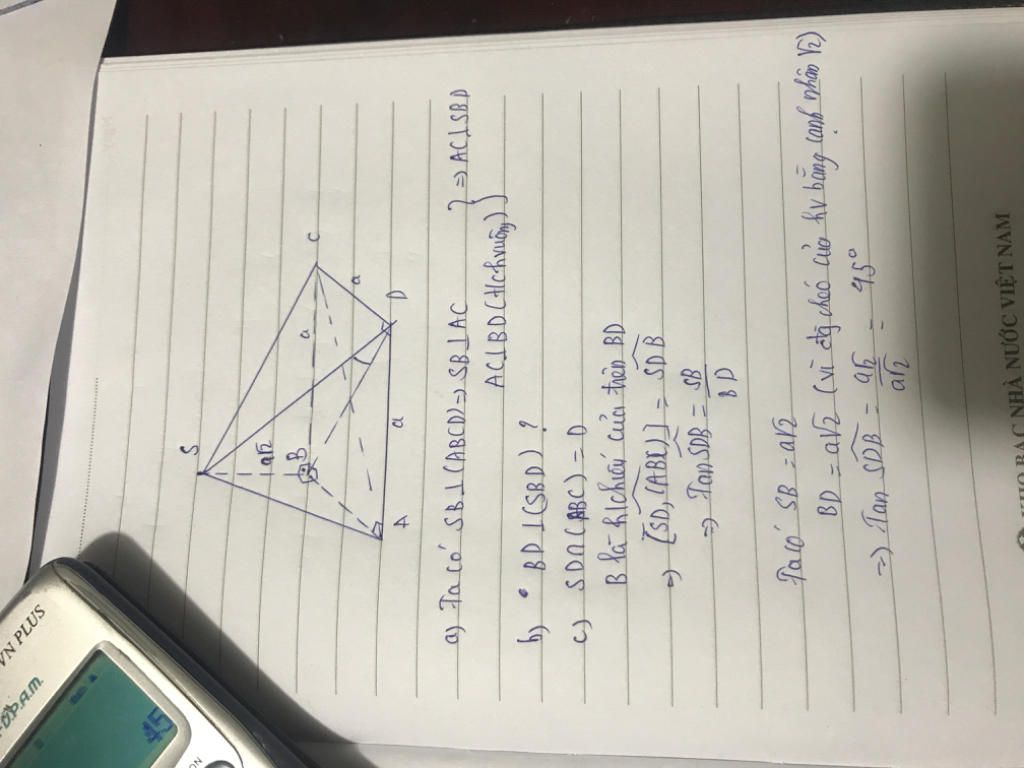 S
a√2
B
a
C
a
A
a
D
a) Ta có SB ⊥ (ABCD) => SB ⊥ AC
AC ⊥ BD (t/c h vuông) } => AC ⊥ SBD
b) • BD ⊥ (SBD) ?
c) SD ∩ (ABC) = D
B là h/chiếu của trên BD
=> [SD, (ABC)] = SDB
=> Tan SDB = SB / BD
Ta có SB = a√2
BD = a√2 (vì chéo của hv bằng cạnh nhân √2)
=> Tan SDB = a√2 / a√2 = 45°
KHO BẠC NHÀ NƯỚC VIỆT NAM
VN PLUS
45
ON